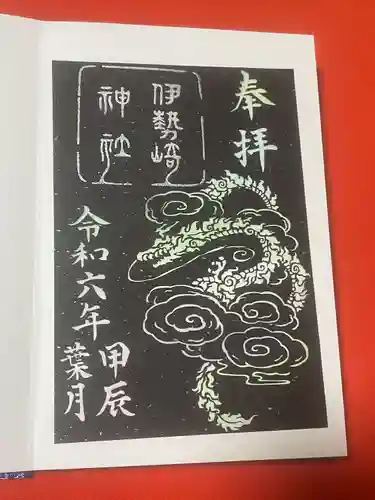 奉拝
伊勢崎
神社
令和六年
甲辰
葉月